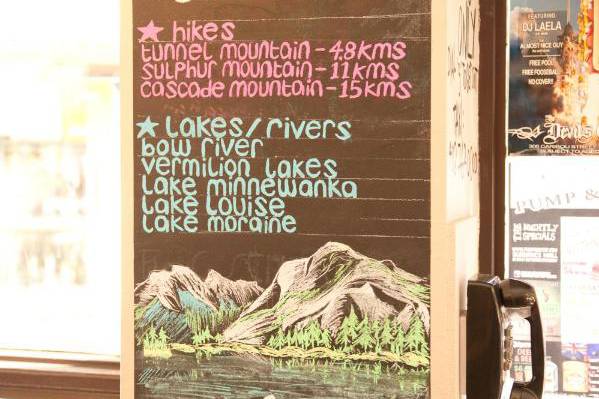 ★ hikes
tunnel mountain - 4.8 kms
sulphur mountain - 11 kms
cascade mountain - 15 kms
★ Lakes/rivers
bow river
vermilion lakes
lake minnewanka
lake louise
lake moraine
FEATURING
DJ LAELA
ALMOST NICE GUY
FREE POOL
FREE FOOSEBALL
NO COVER!!
Devil's
305 CARIBOU STREET
PUMP &
THE NIGHTLY
SPECIALS